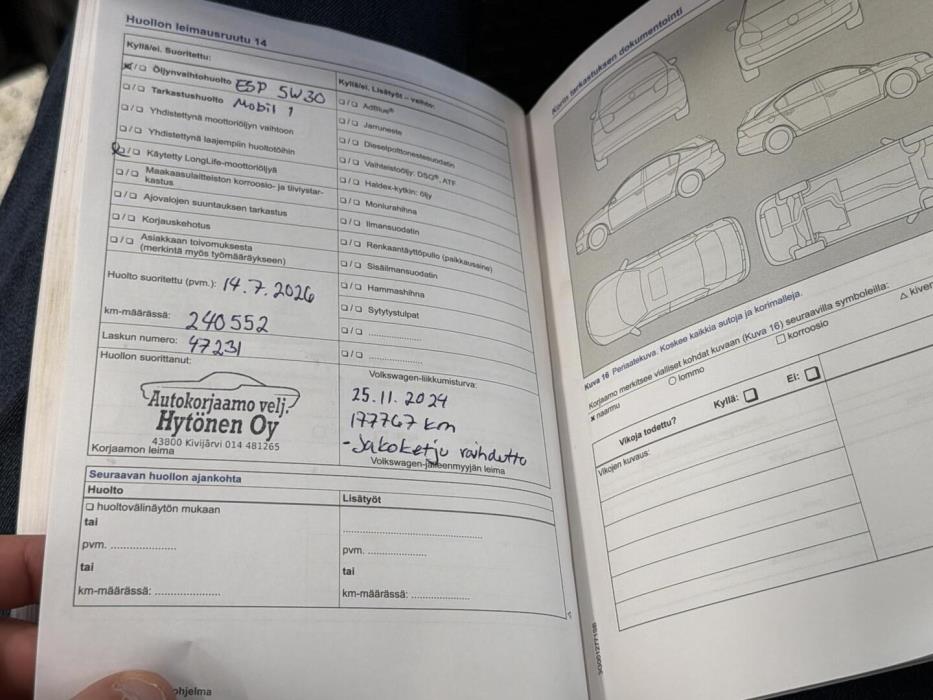 Huollon leimausruutu 14
Kyllä/ei. Suoritettu:
☒/❏ Öljynvaihtohuolto ESP 5W30
❏/❏ Tarkastushuolto Mobil 1
❏/❏ Yhdistettynä moottoriöljyn vaihtoon
❏/❏ Yhdistettynä laajempiin huoltotöihin
☒/❏ Käytetty LongLife-moottoriöljyä
❏/❏ Maakaasulaitteiston korroosio- ja tiiviystar-
kastus
❏/❏ Ajovalojen suuntauksen tarkastus
❏/❏ Korjauskehotus
❏/❏ Asiakkaan toivomuksesta
(merkintä myös työmääräykseen)
Huolto suoritettu (pvm.): 14.7.2026
km-määrässä: 240552
Laskun numero: 47231
Huollon suorittanut:
Autokorjaamo velj.
Hytönen Oy
43800 Kivijärvi 014 481265
Korjaamon leima
Kyllä/ei. Lisätyöt – vaihto:
❏/❏ AdBlue®
❏/❏ Jarruneste
❏/❏ Dieselpolttonestesuodatin
❏/❏ Vaihteistoöljy: DSG®, ATF
❏/❏ Haldex-kytkin: öljy
❏/❏ Moniurahihna
❏/❏ Ilmansuodatin
❏/❏ Renkaantäyttöpullo (paikkausaine)
❏/❏ Sisäilmansuodatin
❏/❏ Hammashihna
❏/❏ Sytytystulpat
❏/❏ ....................
❏/❏ ....................
Volkswagen-liikkumisturva:
25.11.2024
177767 km
- Jakoketju vaihdettu
Volkswagen-jälleenmyyjän leima
Seuraavan huollon ajankohta
Huolto
❏ huoltovälinäytön mukaan
tai
pvm. ....................
tai
km-määrässä: ....................
Lisätyöt
........................................
pvm. ....................
tai
km-määrässä: ....................
ohjelma
Korin tarkastuksen dokumentointi
Kuva 16 Periaatekuva. Koskee kaikkia autoja ja korimalleja.
Korjaamo merkitsee vialliset kohdat kuvaan (Kuva 16) seuraavilla symboleilla:
× naarmu ○ lommo □ korroosio △ kiven
Vikoja todettu? Kyllä: ❏ Ei: ❏
Vikojen kuvaus: